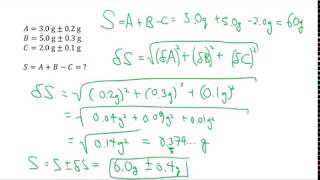 A = 3.0 g ± 0.2 g
B = 5.0 g ± 0.3 g
C = 2.0 g ± 0.1 g
S = A + B − C = ?
S = A + B − C = 3.0g + 5.0g − 2.0g = 6.0g
δS = √((δA)² + (δB)² + (δC)²)
δS = √((0.2g)² + (0.3g)² + (0.1g)²)
= √(0.04g² + 0.09g² + 0.01g²)
= √(0.14g²) = 0.374... g
S = S ± δS = 6.0g ± 0.4g